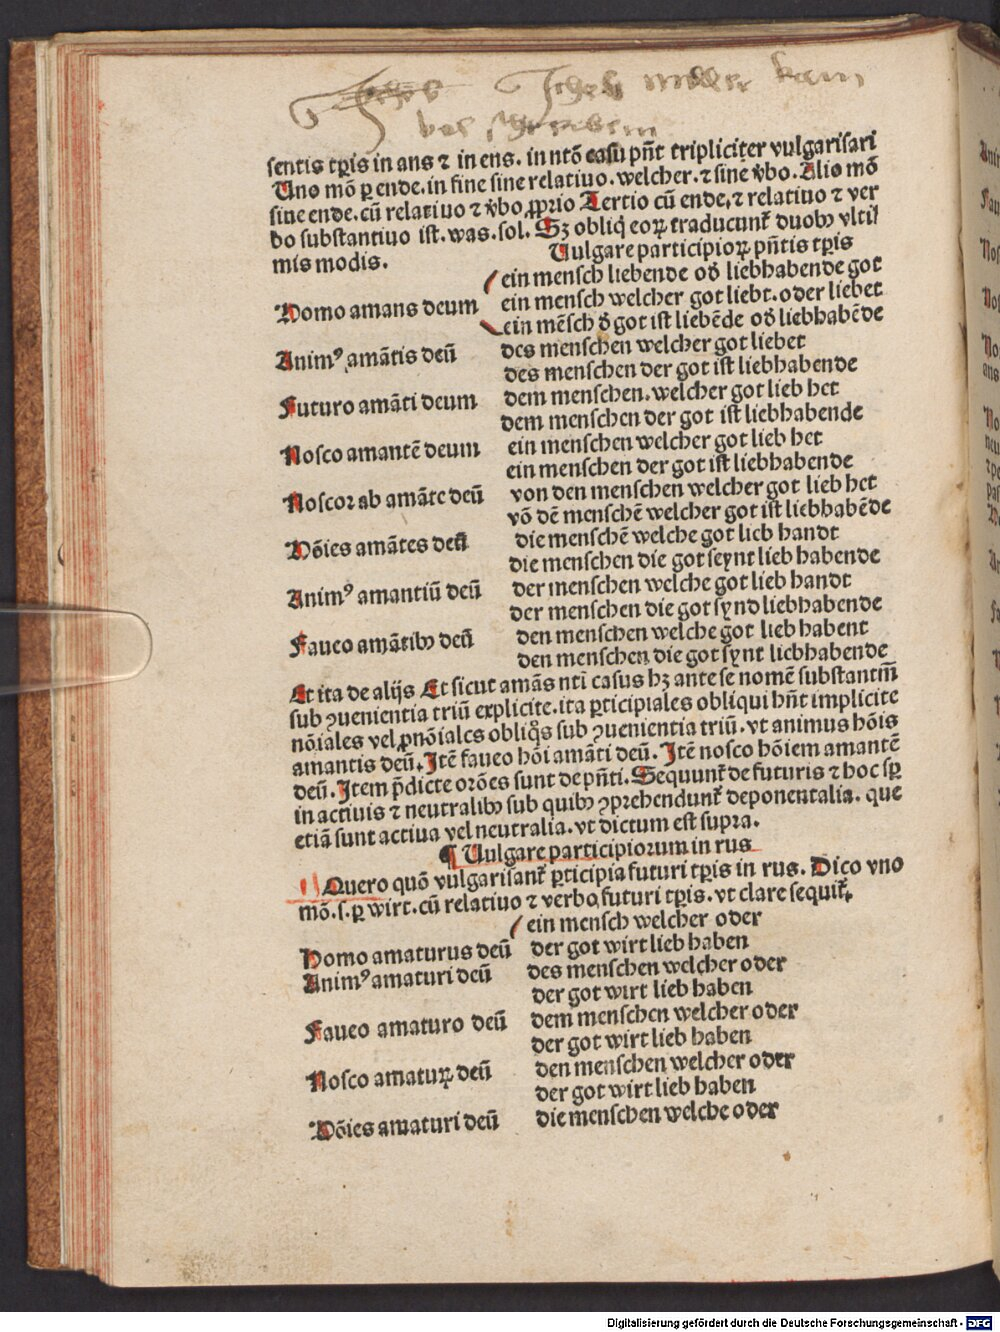 sentis tꝑis in ans ⁊ in ens. in ntō casu pn̄t tripliciter vulgarisari
Uno mō ꝑ ende. in fine sine relatiuo. welcher. ⁊ sine v̄bo. Alio mō
sine ende. cū relatiuo ⁊ v̄bo ꝓprio Tertio cū ende. ⁊ relatiuo ⁊ ver
bo substantiuo ist. was. sol. Sꝫ obliq̄ eoꝝ traducunt᷑ duobꝰ vlti
mis modis.
Uulgare participioꝝ pn̄tis tꝑis
ein mensch liebende od̄ liebhabende got
Homo amans deum
ein mensch welcher got liebt. oder liebet
ein mēsch d̄ got ist liebēde od̄ liebhabēde
Animꝰ amātis deū
des menschen welcher got liebet
des menschen der got ist liebhabende
Futuro amāti deum
dem menschen. welcher got lieb het
dem menschen der got ist liebhabende
Nosco amantē deum
ein menschen welcher got lieb het
ein menschen der got ist liebhabende
Noscor ab amāte deū
von den menschen welcher got lieb het
vō dē menschē welcher got ist liebhabēde
Hōies amātes deū
die menschē welche got lieb handt
die menschen die got seynt lieb habende
Animꝰ amantiū deū
der menschen welche got lieb handt
der menschen die got synd liebhabende
Faueo amātibꝰ deū
den menschen welche got lieb habent
den menschen die got synt liebhabende
Et ita de alijs Et sicut amās nti casus hꝫ ante se nomē substantiuū
sub ꝯuenientia triū explicite. ita ꝑticipiales obliqui hn̄t implicite
nōiales vel ꝓnōiales obliqͦs sub ꝯuenientia triū. vt animus hōis
amantis deū. Itē faueo hōi amāti deū. Itē nosco hōiem amantē
deū. Item p̄dicte orōes sunt de pn̄ti. Sequunt᷑ de futuris ⁊ hoc sꝑ
in actiuis ⁊ neutralibꝰ sub quibꝰ ꝯprehendunt᷑ deponentalia. que
etiā sunt actiua vel neutralia. vt dictum est supra.
¶ Uulgare participiorum in rus
Quero quō vulgarisant᷑ ꝑticipia futuri tꝑis in rus. Dico vno
mō. s. ꝑ wirt. cū relatiuo ⁊ verbo futuri tꝑis. vt clare sequit᷑.
ein mensch welcher oder
Homo amaturus deū
der got wirt lieb haben
Animꝰ amaturi deū
des menschen welcher oder
der got wirt lieb haben
Faueo amaturo deū
dem menschen welcher oder
der got wirt lieb haben
Nosco amatuꝝ deū
den menschen welcher oder
der got wirt lieb haben
Hōies amaturi deū
die menschen welche oder
Digitalisierung gefördert durch die Deutsche Forschungsgemeinschaft - DFG